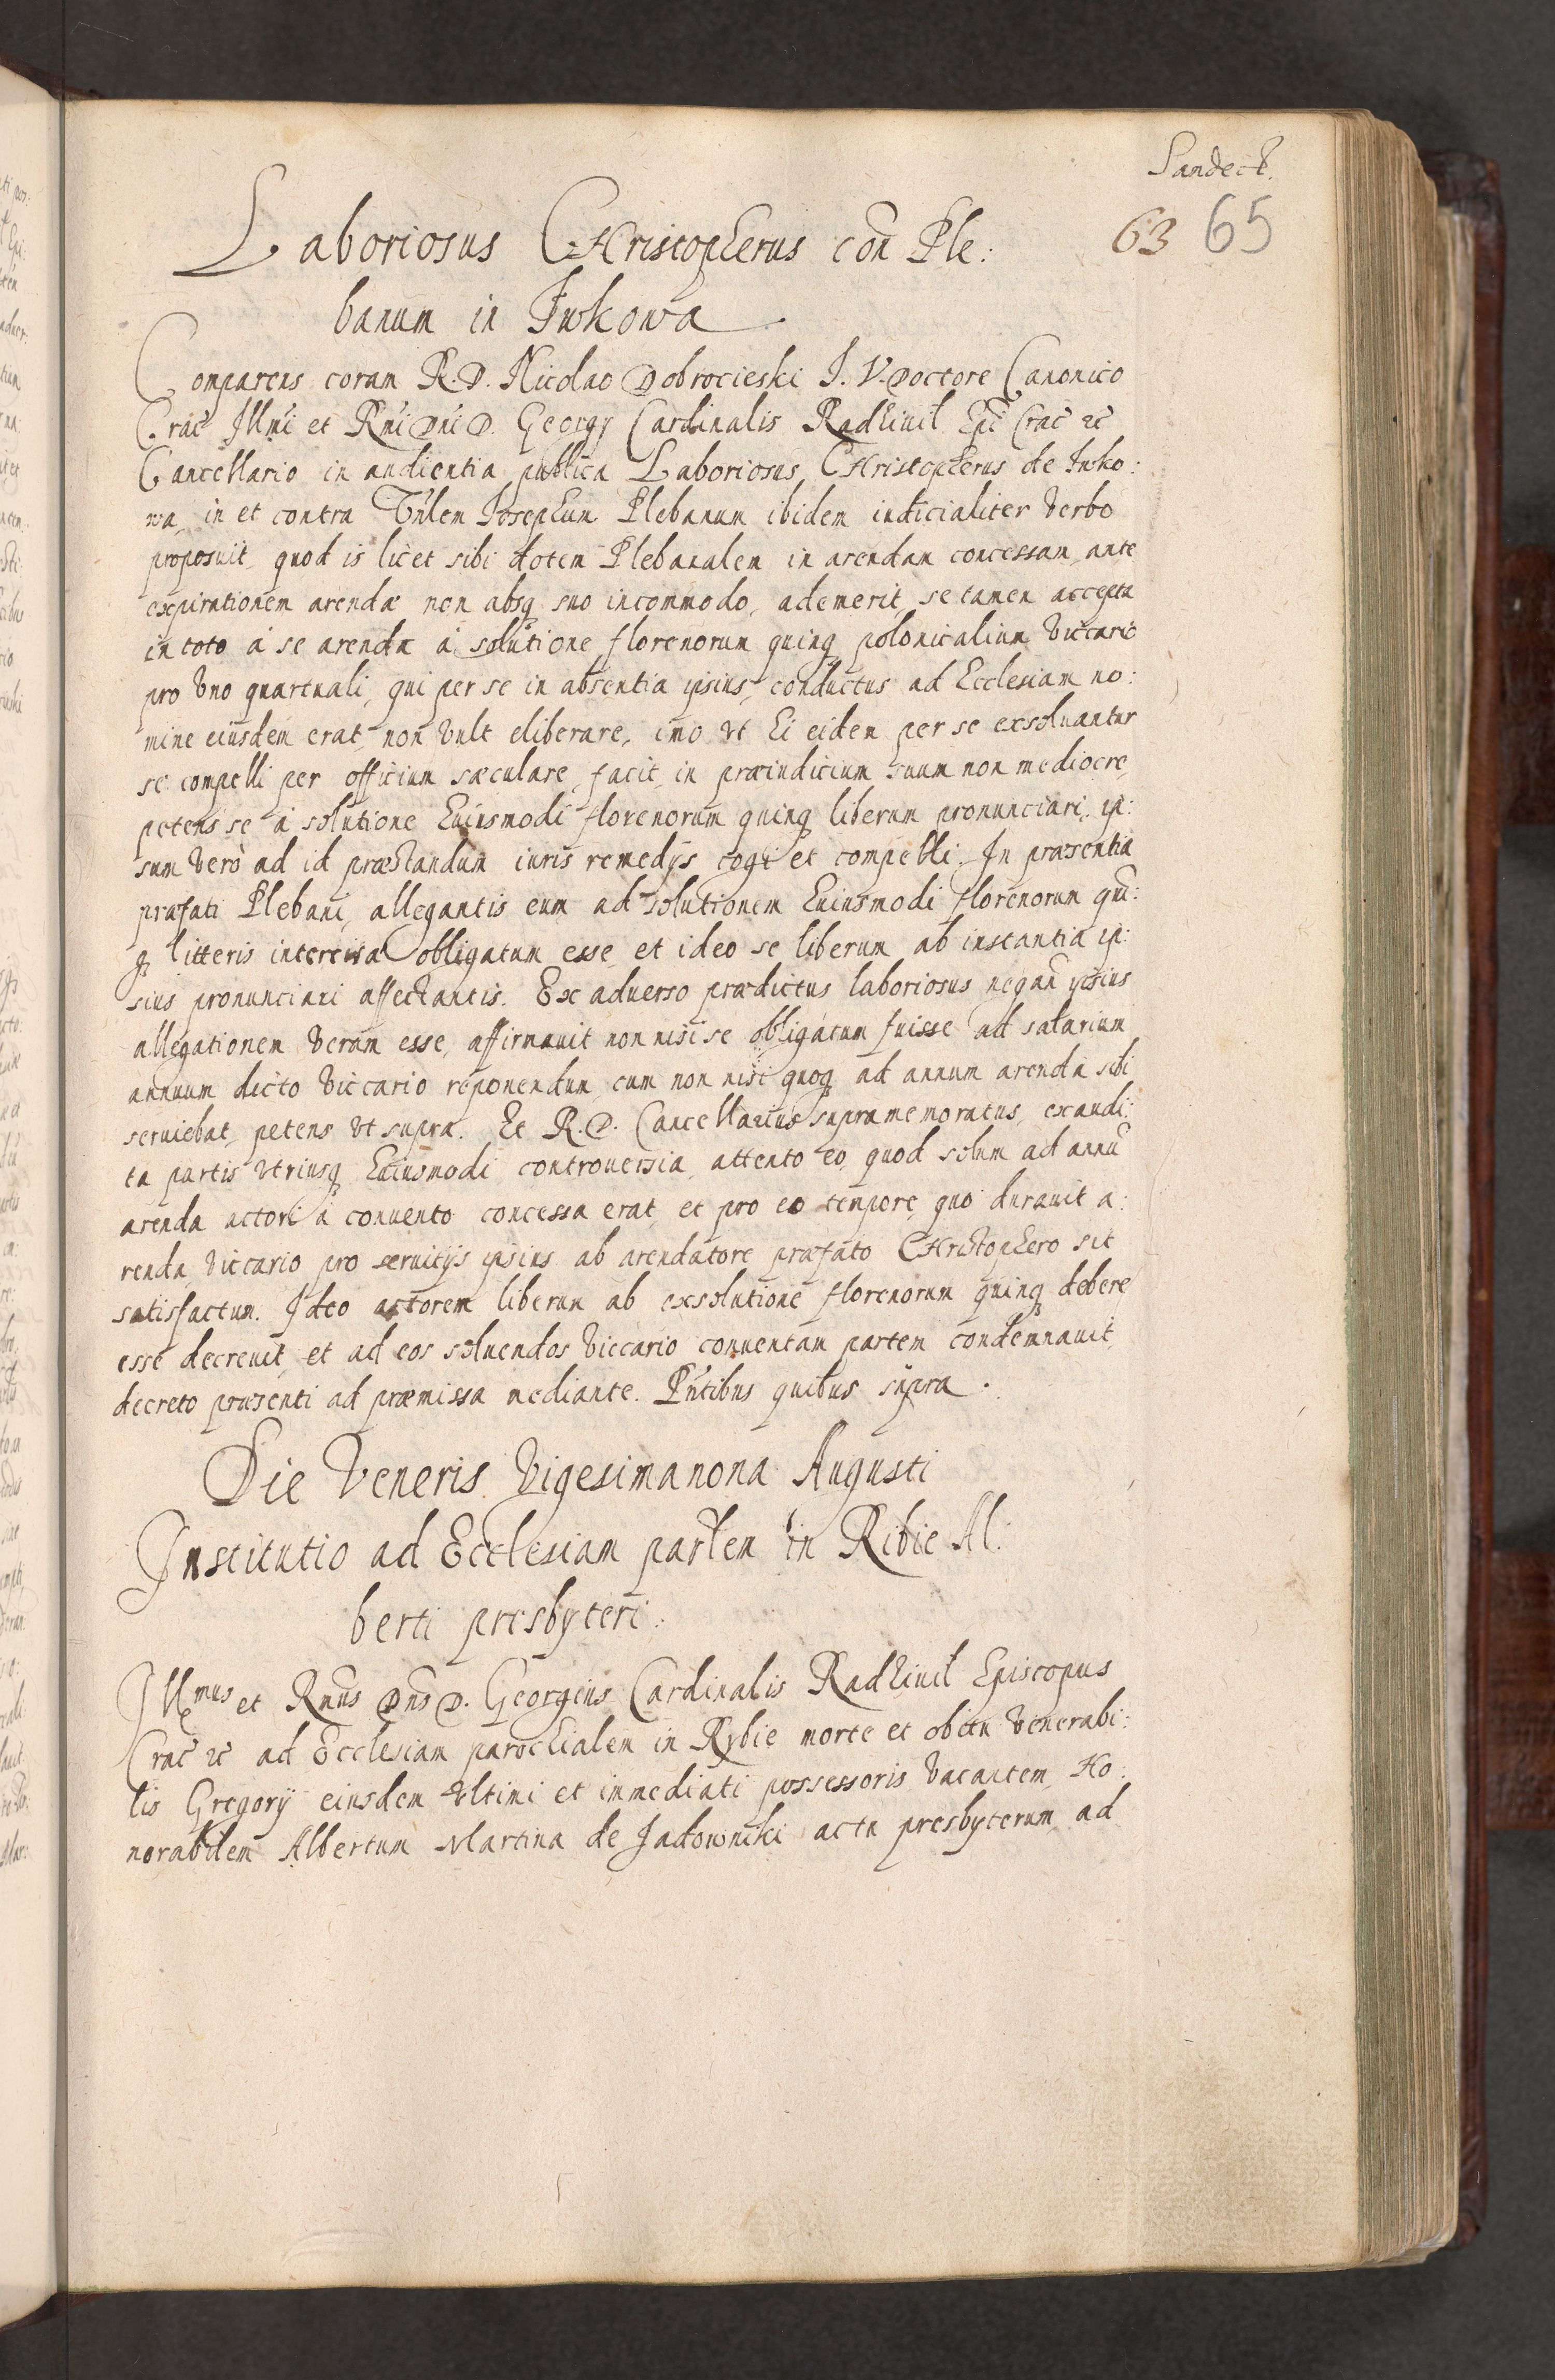 Sandec.
63 65
Laboriosus Christopherus con Ple:
banum in Iwkowa
Comparens coram R. D. Nicolao Dobrocieski I. V. Doctore Canonico
Crac̃ Illm̃i et Rm̃i Dñi D. Georgy Cardinalis Radziuil Ep̃i Crac̃ etc̃
Cancellario in audientia publica Laboriosus Christopherus de Iwko:
wa, in et contra Ṽnlem Iosephum Plebanum ibidem iudicialiter verbo
proposuit, quod is licet sibi dotem Plebanalem in arendam concessam, ante
expirationem arendæ non absq suo incommodo, ademerit, se tamen accepta
in toto á se arenda á solutione florenorum quinq polonicalium viccario
pro vno quartuali, qui per se in absentia ipsius, conductus ad Ecclesiam no:
mine eiusdem erat, non vult eliberare, imo vt hi eidem per se exsoluantur
se compelli per officium sæculare facit, in præiudicium suum non mediocre,
petens se á solutione huiusmodi florenorum quinq liberum pronunciari, ip:
sum verò ad id præstandum iuris remedijs cogi et compelli. In præsentia
præfati Plebani, allegantis eum ad solutionem huiusmodi florenorum quin:
q litteris intercisa obligatum esse, et ideo se liberum ab instantia ip:
sius pronunciari affectantis. Ex aduerso prædictus laboriosus negan̄ ipsius
allegationem veram esse, affirmauit non nisi se obligatum fuisse ad salarium
annuum dicto viccario reponendum, cum non nisi quoq ad annum arenda sibi
seruiebat, petens vt supra. Et R. D. Cancellarius supramemoratus, exaudi:
ta partis vtriusq huiusmodi controuersia, attento eo, quod solum ad annū
arenda actori á conuento concessa erat, et pro eo tempore, quo durauit a:
renda, viccario pro seruitijs ipsius ab arendatore præfato Christophero sit
satisfactum. Ideo actorem liberum ab exsolutione florenorum quinq debere
esse decreuit, et ad eos soluendos viccario conuentam partem condemnauit,
decreto præsenti ad præmissa mediante. Pñtibus quibus supra.
Die Veneris Vigesimanona Augusti
Institutio ad Ecclesiam parl̃em in Ribie Al:
berti presbyteri:
Illmus et Rm̃us Dñs D. Georgius Cardinalis Radziuil Episcopus
Crac̃ etc̃ ad Ecclesiam parochialem in Rybie morte et obitu Venerabi:
lis Gregorij eiusdem vltimi et immediati possessoris vacantem, Ho:
norabilem Albertum Martina de Jadowniki actu presbyterum, ad